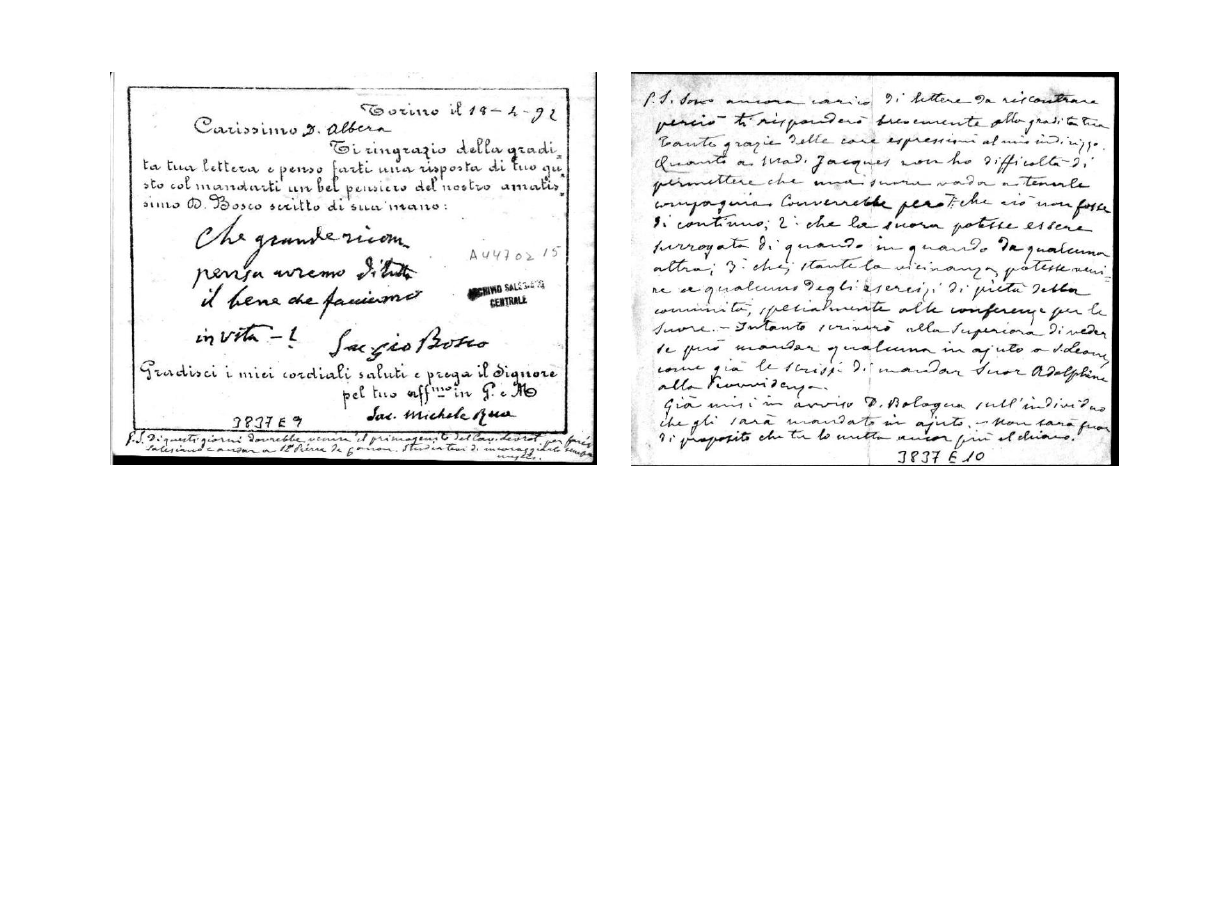 Torino il 18-4-92
Carissimo D. Albera
Ti ringrazio della gradi=
ta tua lettera e penso farti una risposta di tuo gu=
sto col mandarti un bel pensiero del nostro amatis=
simo D. Bosco scritto di sua mano:
Che grande ricom
pensa avremo di tutto
il bene che facciamo
in vita - !
Sac. Gio Bosco
A4470215
ARCHIVIO SALESIANO
CENTRALE
Gradisci i miei cordiali saluti e prega il Signore
pel tuo aff.mo in G. e M
Sac. Michele Rua
3837 E 9
P.S. Di questi giorni dovrebbe venire il primogenito del Cav. Levrot, per farsi
Salesiano e andar a St Pierre de Canon. Studiatevi di incoraggiarlo
P.S. Sono ancora carico di lettere da riscontrare
perciò ti risponderò brevemente alla gradita tua
Tante grazie delle care espressioni al mio indirizzo.
Quanto a Mad. Jacques non ho difficoltà di
permettere che una suora vada a tenerle
compagnia. Converrebbe però 1: che ciò non fosse
di continuo; 2: che la suora potesse essere
surrogata di quando in quando da qualcuna
altra; 3: che, stante la vicinanza, potesse veni=
re a qualcuno degli esercizi di pietà della
comunità, specialmente alle conferenze per le
Suore. - Intanto scriverò alla Superiora di veder
se può mandar qualcuna in ajuto a
come già le scrissi di mandar Suor Adolphine
alla Provvidenza.
Già misi in avviso D. Bologna sull'individuo
che gli sarà mandato in ajuto. - Non sarà fuor
di proposito che tu lo metta ancor più al chiaro.
3837 E 10